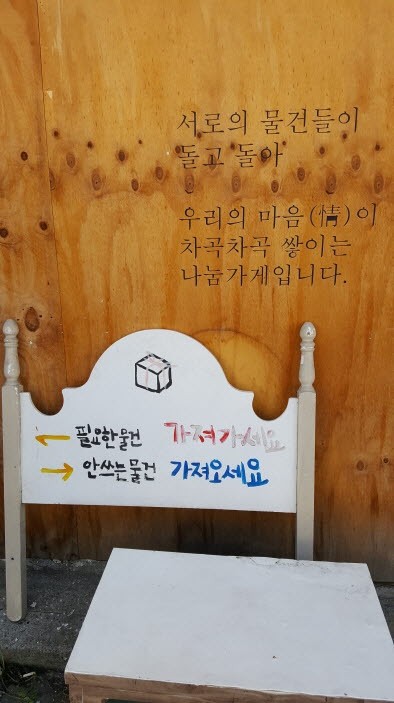 서로의 물건들이
돌고 돌아
우리의 마음(情)이
차곡차곡 쌓이는
나눔가게입니다.
← 필요한물건 가져가세요
→ 안쓰는물건 가져오세요